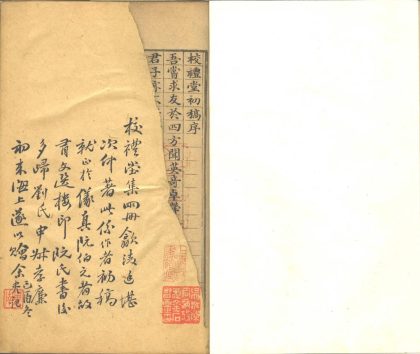 校禮堂初稿序
吾嘗求友於四方聞英奇卓犖
君子
校禮堂集四冊歙淩廷堪
次仲著此係作者初稿
就正於儀真阮伯元者故
有文選樓印阮氏書後
多歸劉氏申叔孝廉
初來海上遂以贈余
己酉冬